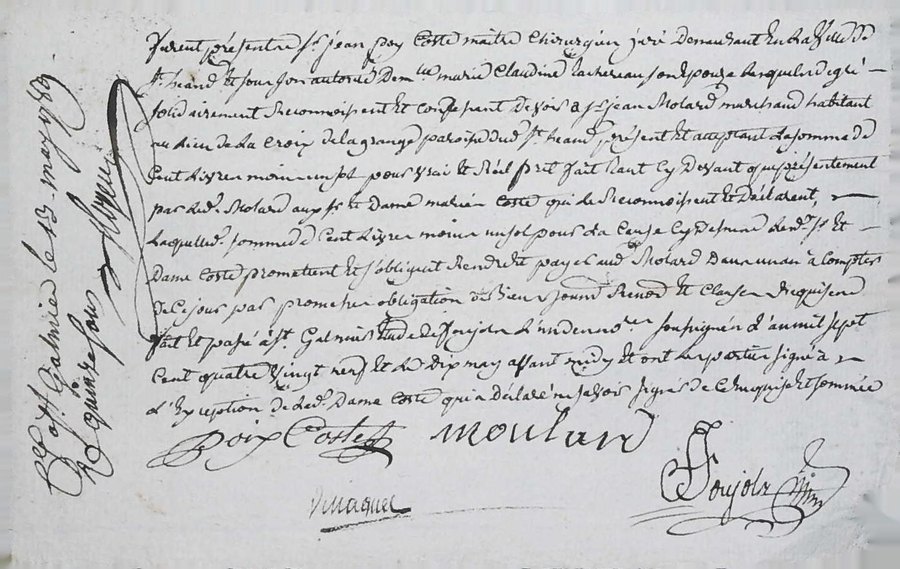 furent présentre Sr jean poy Coste maitre Chirurgien juré Demeurant En La Ville de
St heand Et sous son autorité Demlle marie Claudine Lachereau son Epouze Lesquels de gré
solidairement Reconnoissent Et Confessent Devoir a Sr jean Molard marchand habitant
au Lieu de La Croix de la grange paroisse dud St heand présent Et acceptant La somme de
Cent Livres moins un sol pour vrai Et Réel prêt fait tant Cy Devant que présentement
par Led. Molard aux Sr Et Dame mariés Coste qui Le Reconnoissent Et Déclarent,
Laquelle somme de Cent Livres moins un sol pour La Cause Cy Dessus Led. Sr Et
Dame Coste promettent Et s'obligent Rendre Et payer aud Molard Dans un an a Compter
de Ce jour par promesse obligation de Biens Renon Et Clauses Requises
fait Et passé a St. Galmier Etude de Soujols L'un des nores soussignés L'an mil sept
Cent quatre vingt neuf Et Le Dix may avant midy Et ont Les parties signé a
L'Exception de Lad. Dame Coste qui a Déclaré ne savoir signer de Ce Enquise Et sommée
poix Coste moulard
Soujols
Cté a St. Galmier le 13 may 1789
R quinze sous